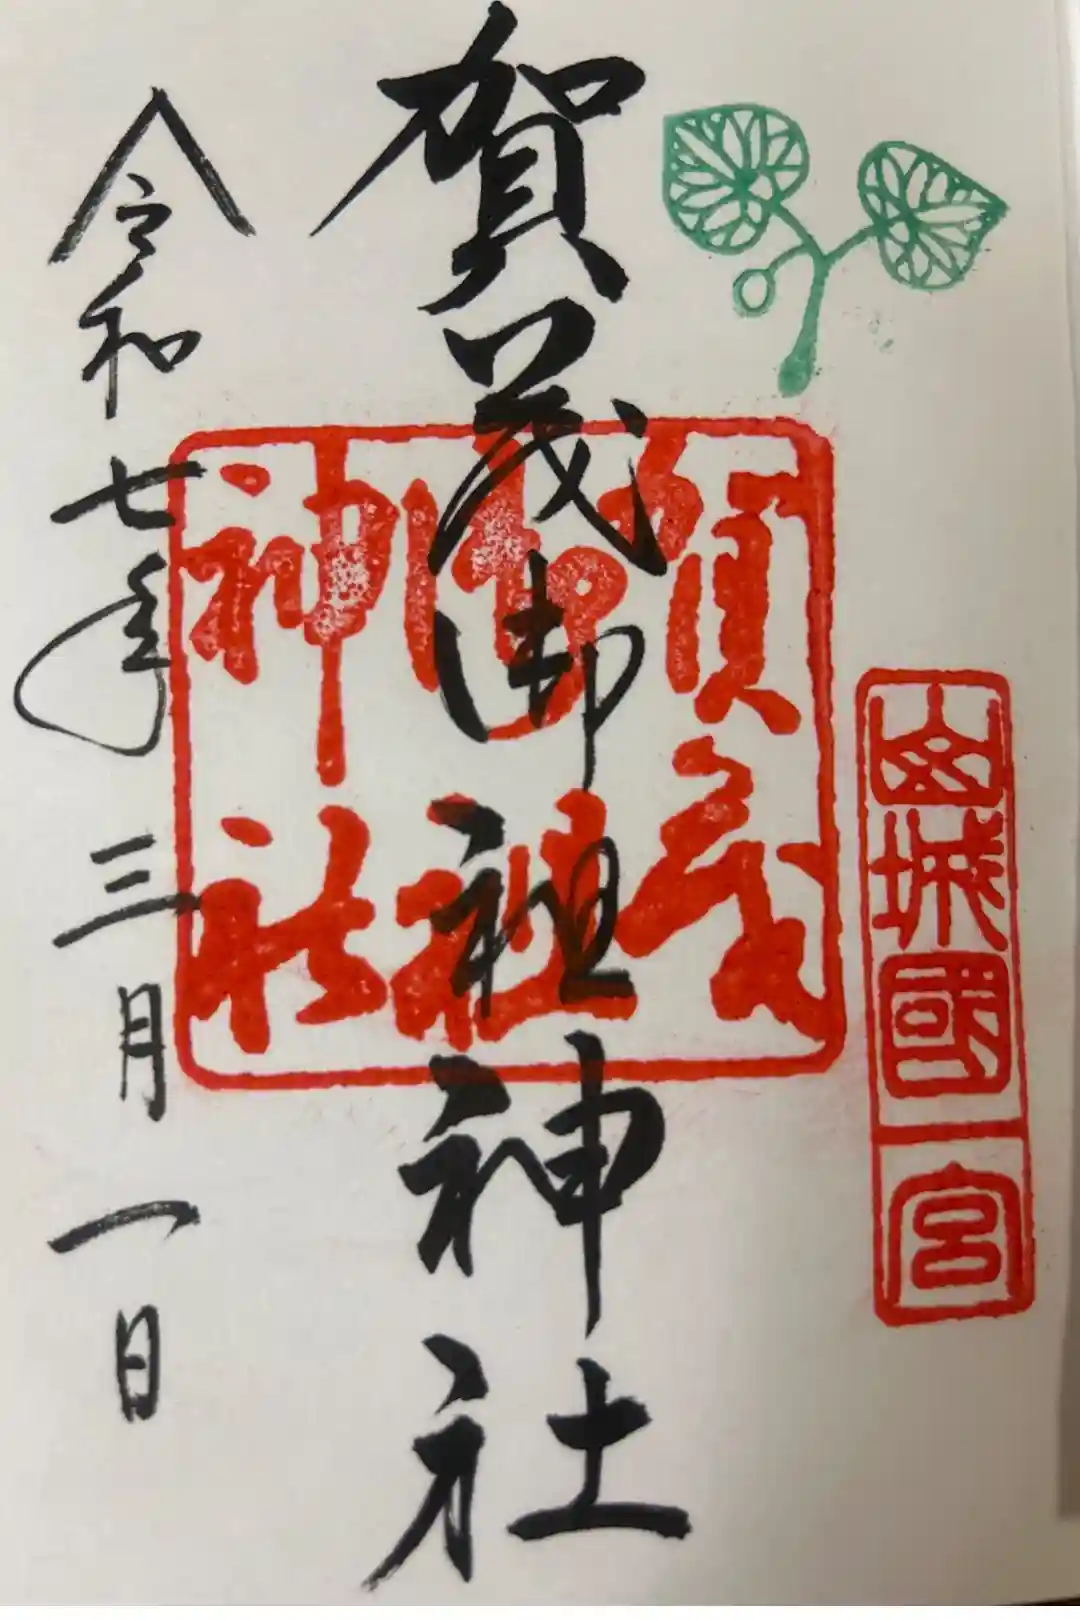 山城國一宮
賀茂御祖神社
賀茂
御祖
神社
令和七年三月一日